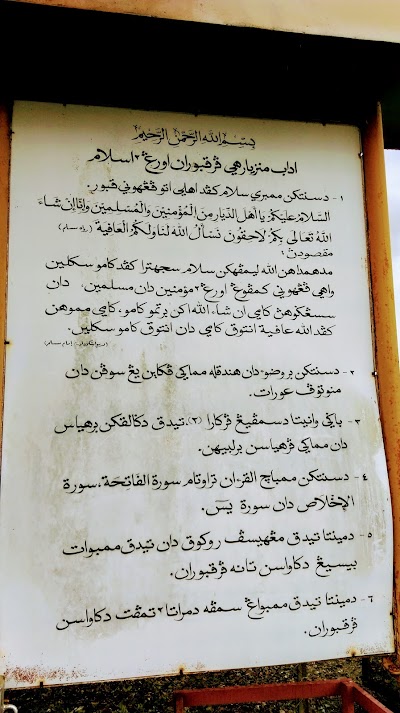 بِسْمِ اللهِ الرَّحْمٰنِ الرَّحِيْمِ
اداب منزيارهي ڤرقبوران اورڠ٢ اسلام
١- دسنتكن ممبري سلام كڤد اهلي اتو ڤڠهوني قبور.
السَّلَامُ عَلَيْكُمْ يَا أَهْلَ الدِّيَارِ مِنَ الْمُؤْمِنِيْنَ وَالْمُسْلِمِيْنَ وَإِنَّا إِنْ شَاءَ
اللهُ تَعَالَى بِكُمْ لَاحِقُوْنَ نَسْأَلُ اللهَ لَنَا وَلَكُمُ الْعَافِيَةَ (رواه مسلم)
مقصودڽ:
مدهمداهن الله ليمڤهكن سلام سجهترا كڤد كامو سكلين
واهي ڤڠهوني كمڤوڠ اورڠ٢ مؤمنين دان مسلمين، دان
سسڠݢوهڽ كامي إن شاء الله اكن برتمو كامو، كامي مموهن
كڤد الله عافية انتوق كامي دان انتوق كامو سكلين.
(رواية امام مسلم)
٢- دسنتكن بروضوء دان هندقله مماكي ڤكاين يڠ سوڤن دان
منوتوڤ عورات.
٣- باݢي وانيتا دسمڤيڠ ڤركارا (٢)، تيدق دݢالقكن برهياس
دان مماكي ڤرهياسن برلبيهن.
٤- دسنتكن ممباچ القرءان تراوتام سورة الفاتحة، سورة
الإخلاص دان سورة يسٓ.
٥- دمينتا تيدق مڠهيسڤ روكوق دان تيدق ممبوات
بيسيڠ دكاواسن تانه ڤرقبوران.
٦- دمينتا تيدق ممبواڠ سمڤه دمراتا٢ تمڤت دكاواسن
ڤرقبوران.